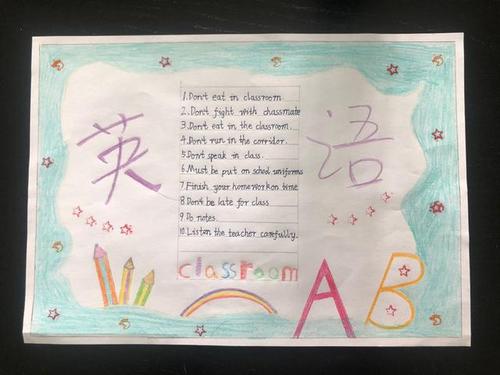 英语
1.Don't eat in classroom.
2.Don't fight with chassmate
3.Don't eat in the classroom.
4.Don't run in the corridor.
5.Don't speak in class.
6.Must be put on school uniforms
7.Finish your homework on time
8.Don't be late for class
9.Do notes.
10.Listen the teacher carefully.
classroom
AB